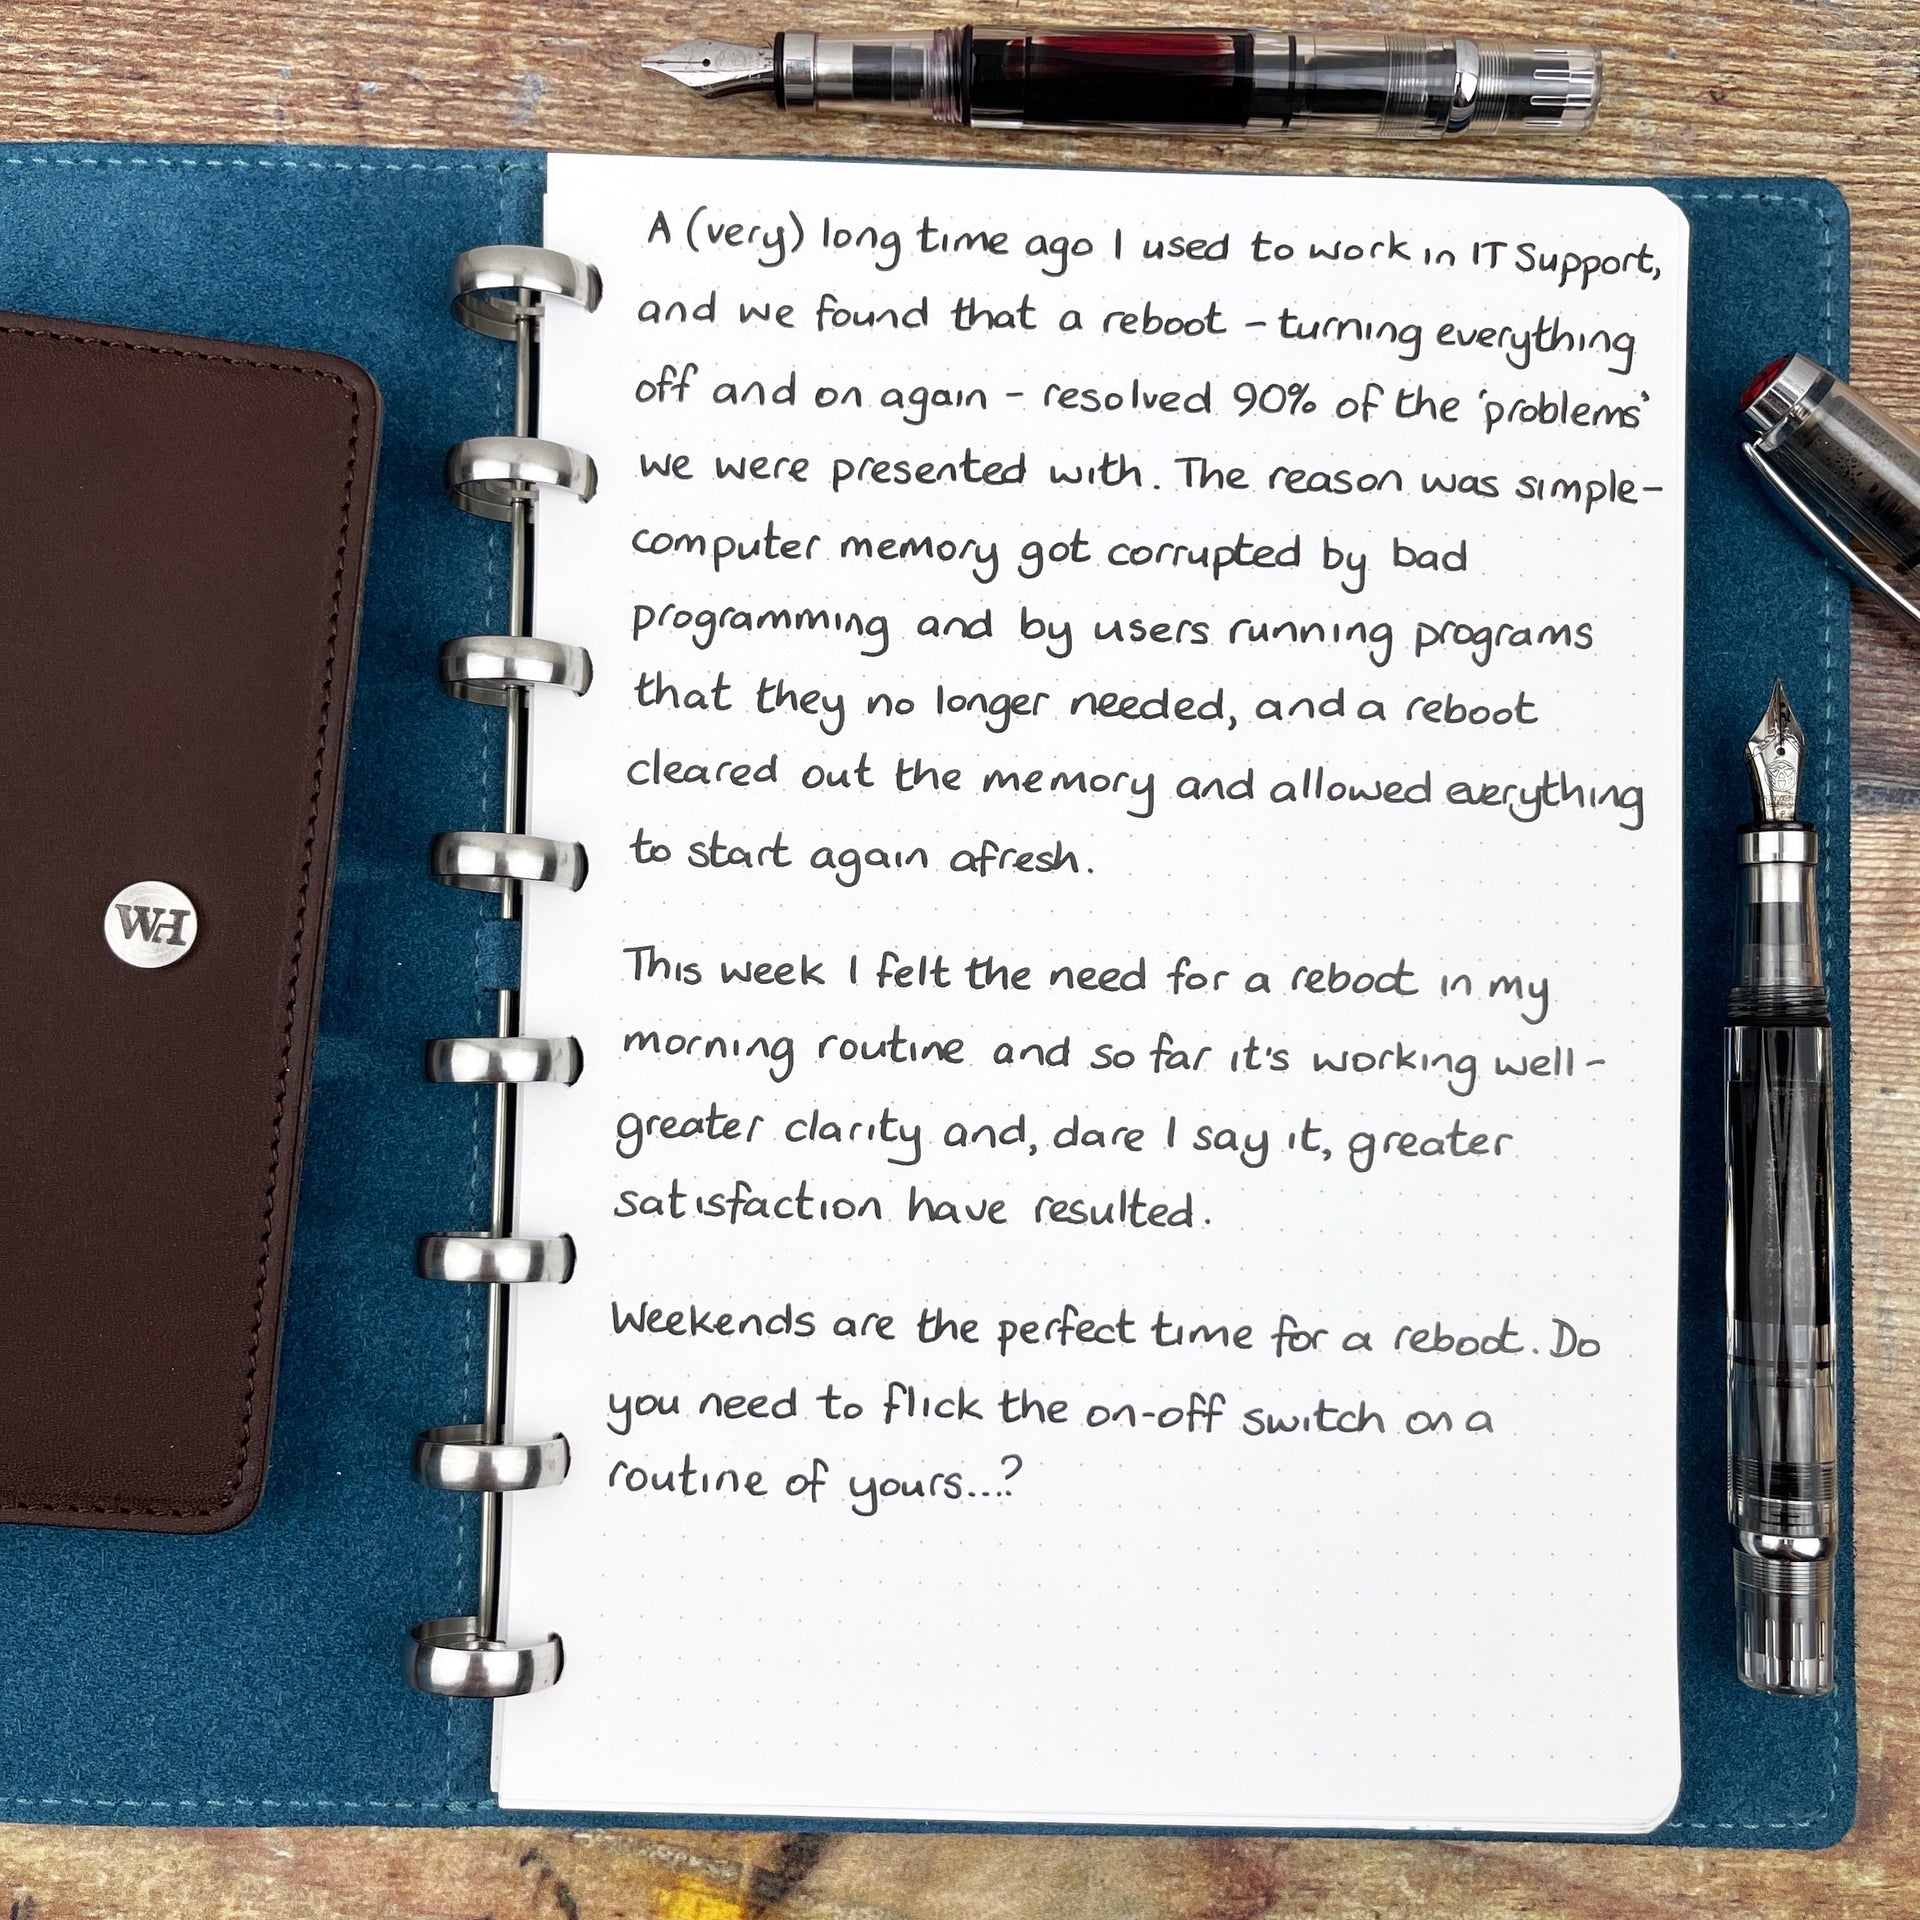 A (very) long time ago I used to work in IT Support,
and we found that a reboot – turning everything
off and on again – resolved 90% of the 'problems'
we were presented with. The reason was simple –
computer memory got corrupted by bad
programming and by users running programs
that they no longer needed, and a reboot
cleared out the memory and allowed everything
to start again afresh.
This week I felt the need for a reboot in my
morning routine and so far it's working well –
greater clarity and, dare I say it, greater
satisfaction have resulted.
Weekends are the perfect time for a reboot. Do
you need to flick the on-off switch on a
routine of yours...?
WH